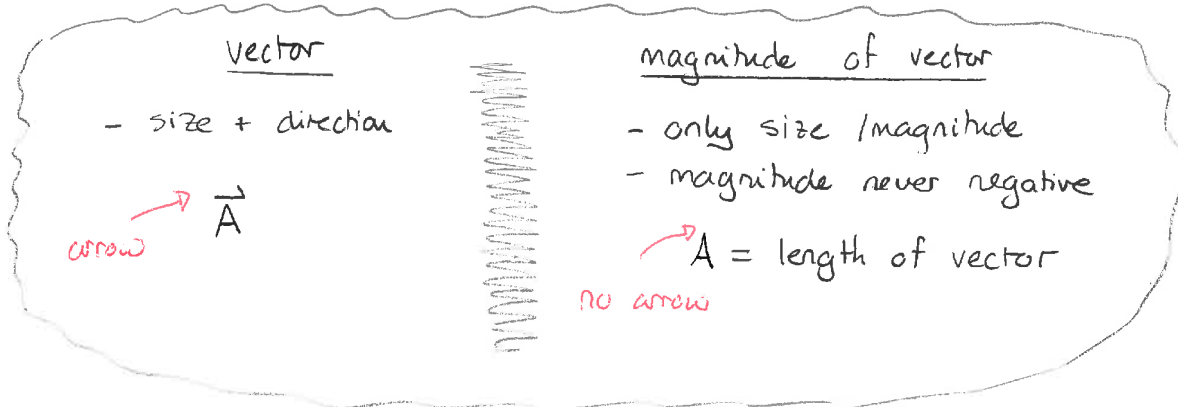 vector
- size + direction
A⃗
arrow
magnitude of vector
- only size /magnitude
- magnitude never negative
A = length of vector
no arrow